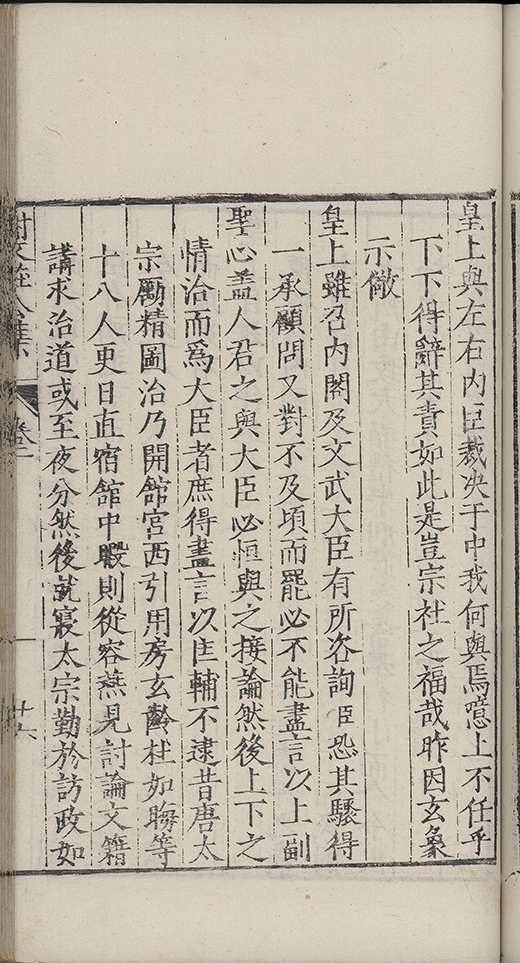 皇上與左右内臣裁决于中我何與焉噫上不任乎
下下得辭其責如此是豈宗社之福哉昨因玄象
示儆
皇上雖召内閣及文武大臣有所咨詢臣恐其驟得
一承顧問又對不及頃而罷必不能盡言以上副
聖心蓋人君之與大臣必恒與之接論然後上下之
情洽而爲大臣者庶得盡言以匡輔不逮昔唐太
宗勵精圖治乃開舘宫西引用房玄齡杜如晦等
十八人更日直宿舘中暇則從容燕見討論文籍
講求治道或至夜分然後就寢太宗勤於訪政如
卷二
廿六